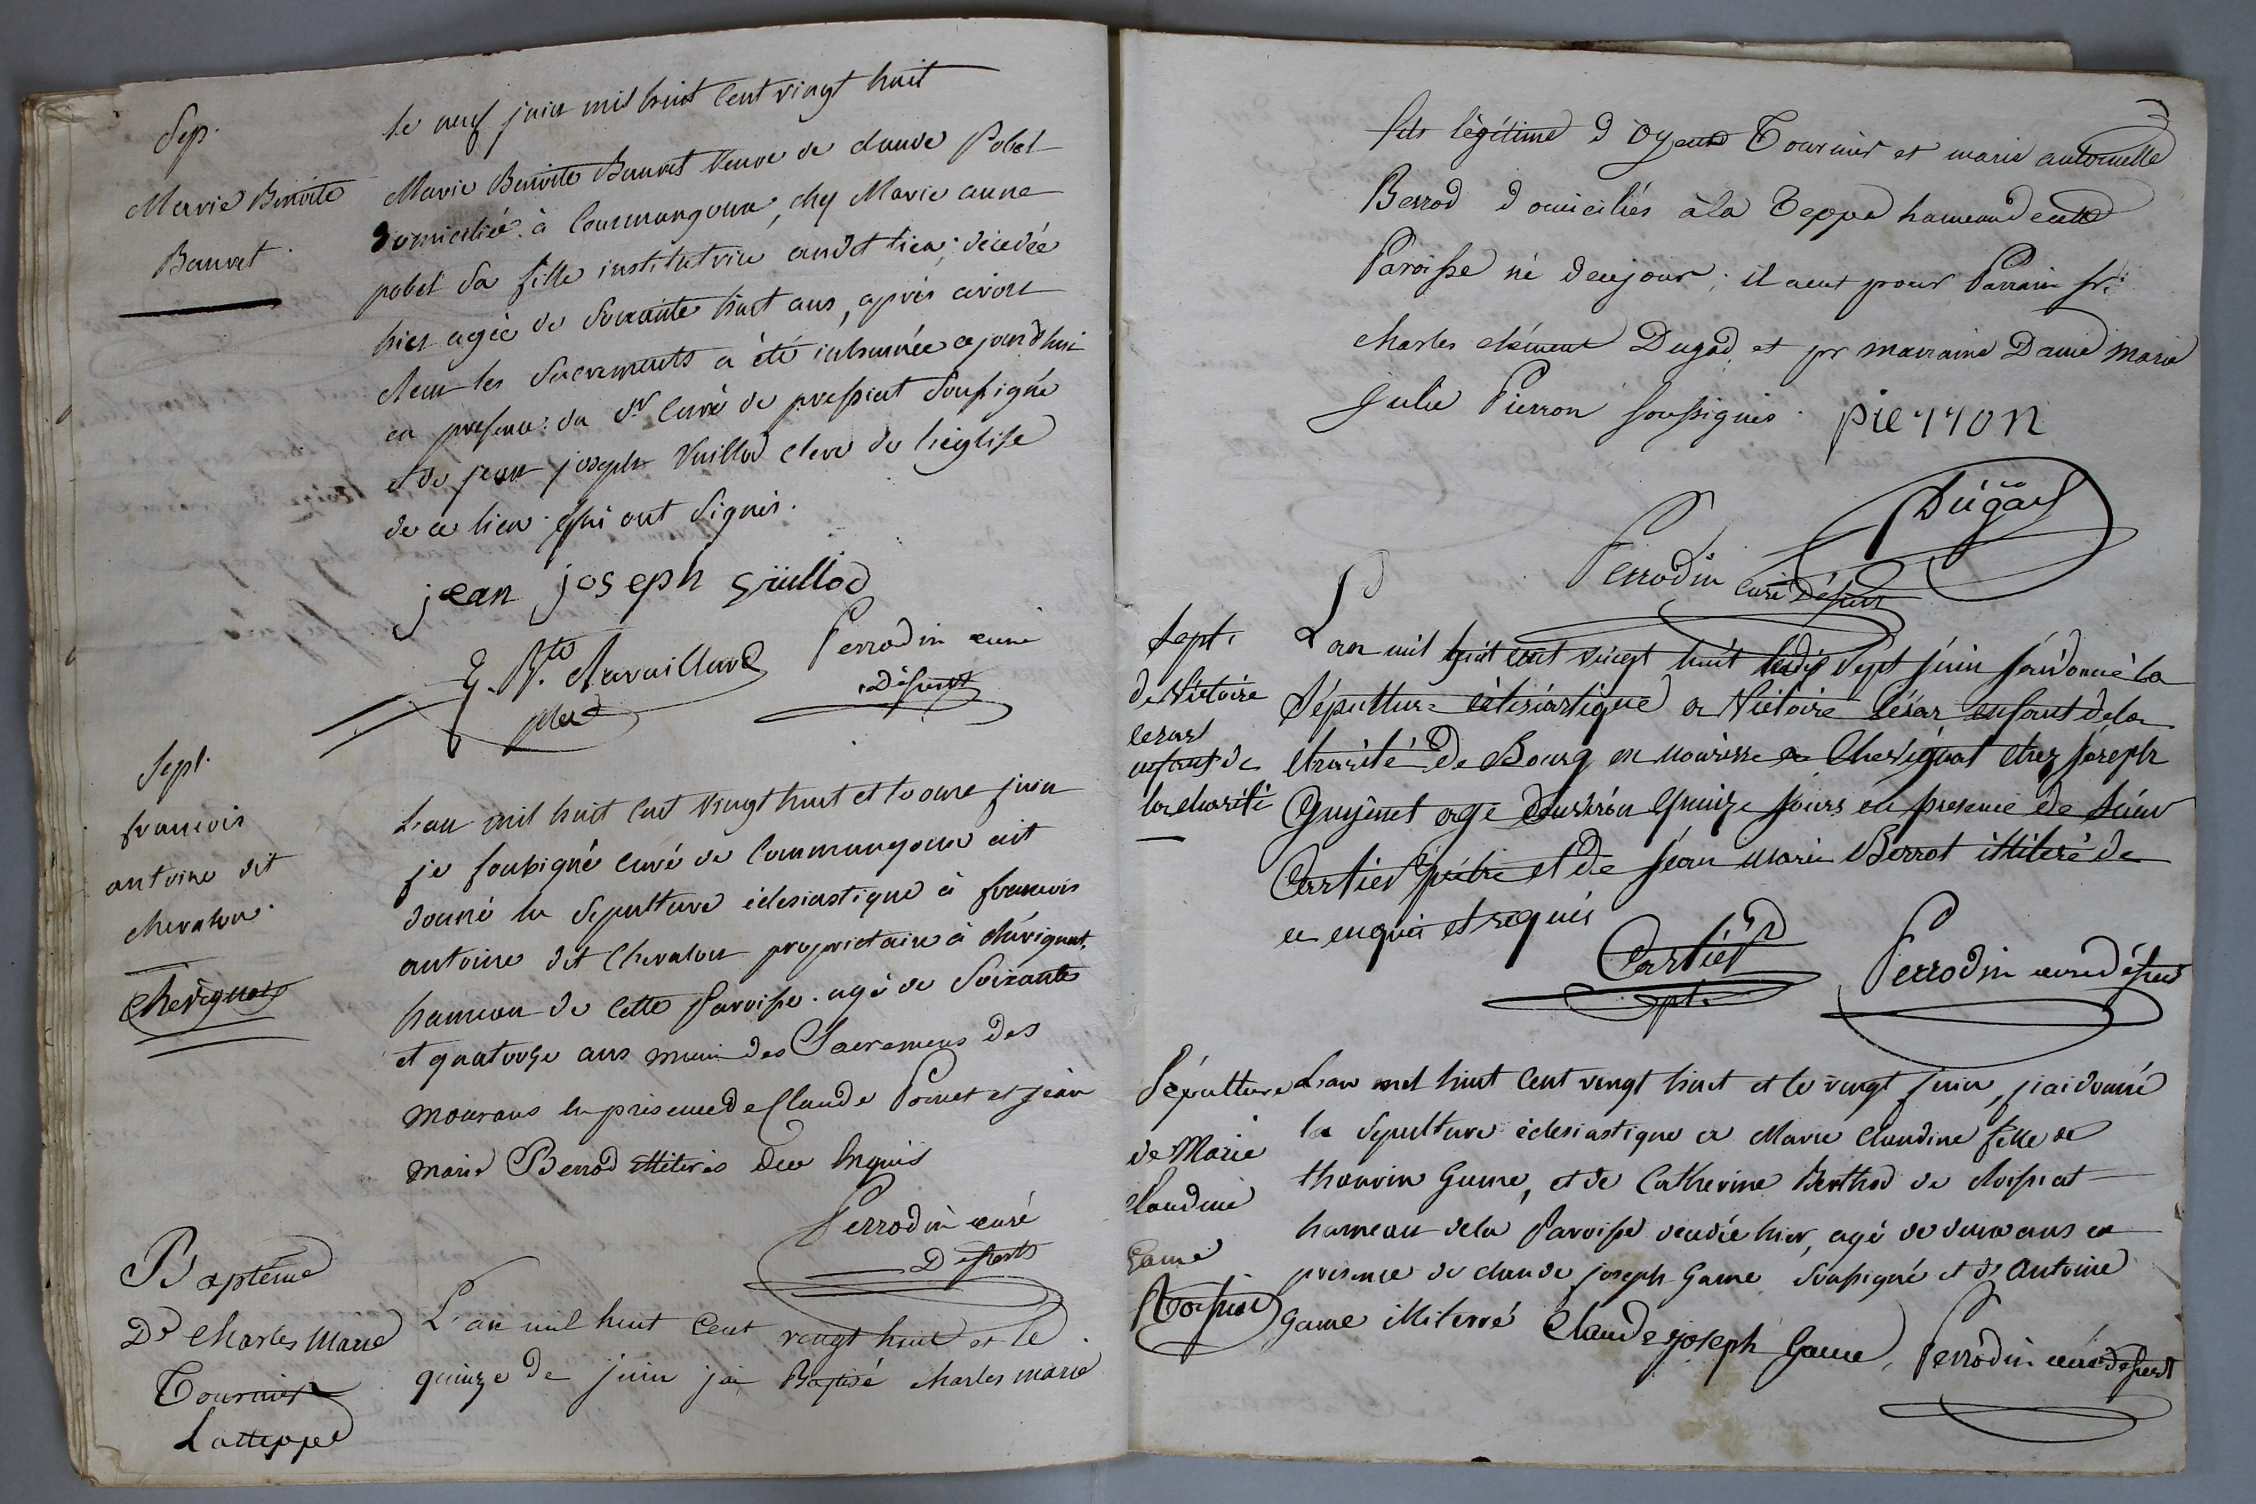 Sep.
Marie Benoite
Bauvet.
le neuf juin mil huit cent vingt huit
Marie Benoite Bauvet veuve de claude Pobel
domiciliée à Courmangoux, chez Marie anne
pobel sa fille institutrice audit lieu; décédée
hier agée de Soixante huit ans, après avoir
les Sacrements a été inhumée aujourd'hui
en presence du Sr Curé de pressiat Soussigné
et de jean joseph Vuillod clerc de l'église
de ce lieu qui ont signés.
jean joseph
Perrodin curé
Déservt
Sept.
francois
antoine dit
chevalon.
Chevignat
L'an mil huit cent vingt huit et le onze juin
je soussigné curé de Courmangoux ait
donné la Sepulture éclesiastique à francois
antoine dit Chevalon proprietaire à chévignat,
hameau de cette Paroisse. agé de Soixante
et quatorze ans muni des Sacremens des
mourans en présence de Claude Ponet et jean
marie Berrod illiterés deu Enquis
Perrodin curé
Déservt
Baptême
De Charles Marie
Tournier
Latteppe
L'an mil huit Cent vingt huit et le
quinze de juin jai Baptisé charles marie
fils légitime d'oyent Tournier et marie antoinette
Berrod domiciliés à la Teppe hameau de cette
Paroisse né de ce jour; il a eut pour Parrain Sr.
charles clément Dugad et pr marraine Dame marie
Julie Pierron soussignés. pierron
Dugad
Perrodin curé Déservt
Sept.
de Victoire
cesar
enfant de
la charité
L'an mil huit cent vingt huit le dix Sept juin jai donné la
Sépulture éclisiastique a Victoire César enfant de la
charité de Bourg en nourisse a Chevignat chez joseph
Guyénet agé d'environ Quinze jours en presence de
Cartier prêtre et de jean marie Berrot illiteré de
ce enquis et requis
Cartier
ptr
Perrodin curé déservt
Sépulture
de Marie
claudine
Game
Roissiat
L'an mil huit Cent vingt huit et le vingt juin, j'ai donné
la Sepulture éclesiastique a Marie claudine fille de
thonvin Game, et de Catherine Berthod de Roissiat
hameau de la Paroisse décédée hier, agé de deux ans en
présence de claude joseph Game Soussigné et d'Antoine
Game illiterré Claude joseph Game, Perrodin curé deservt